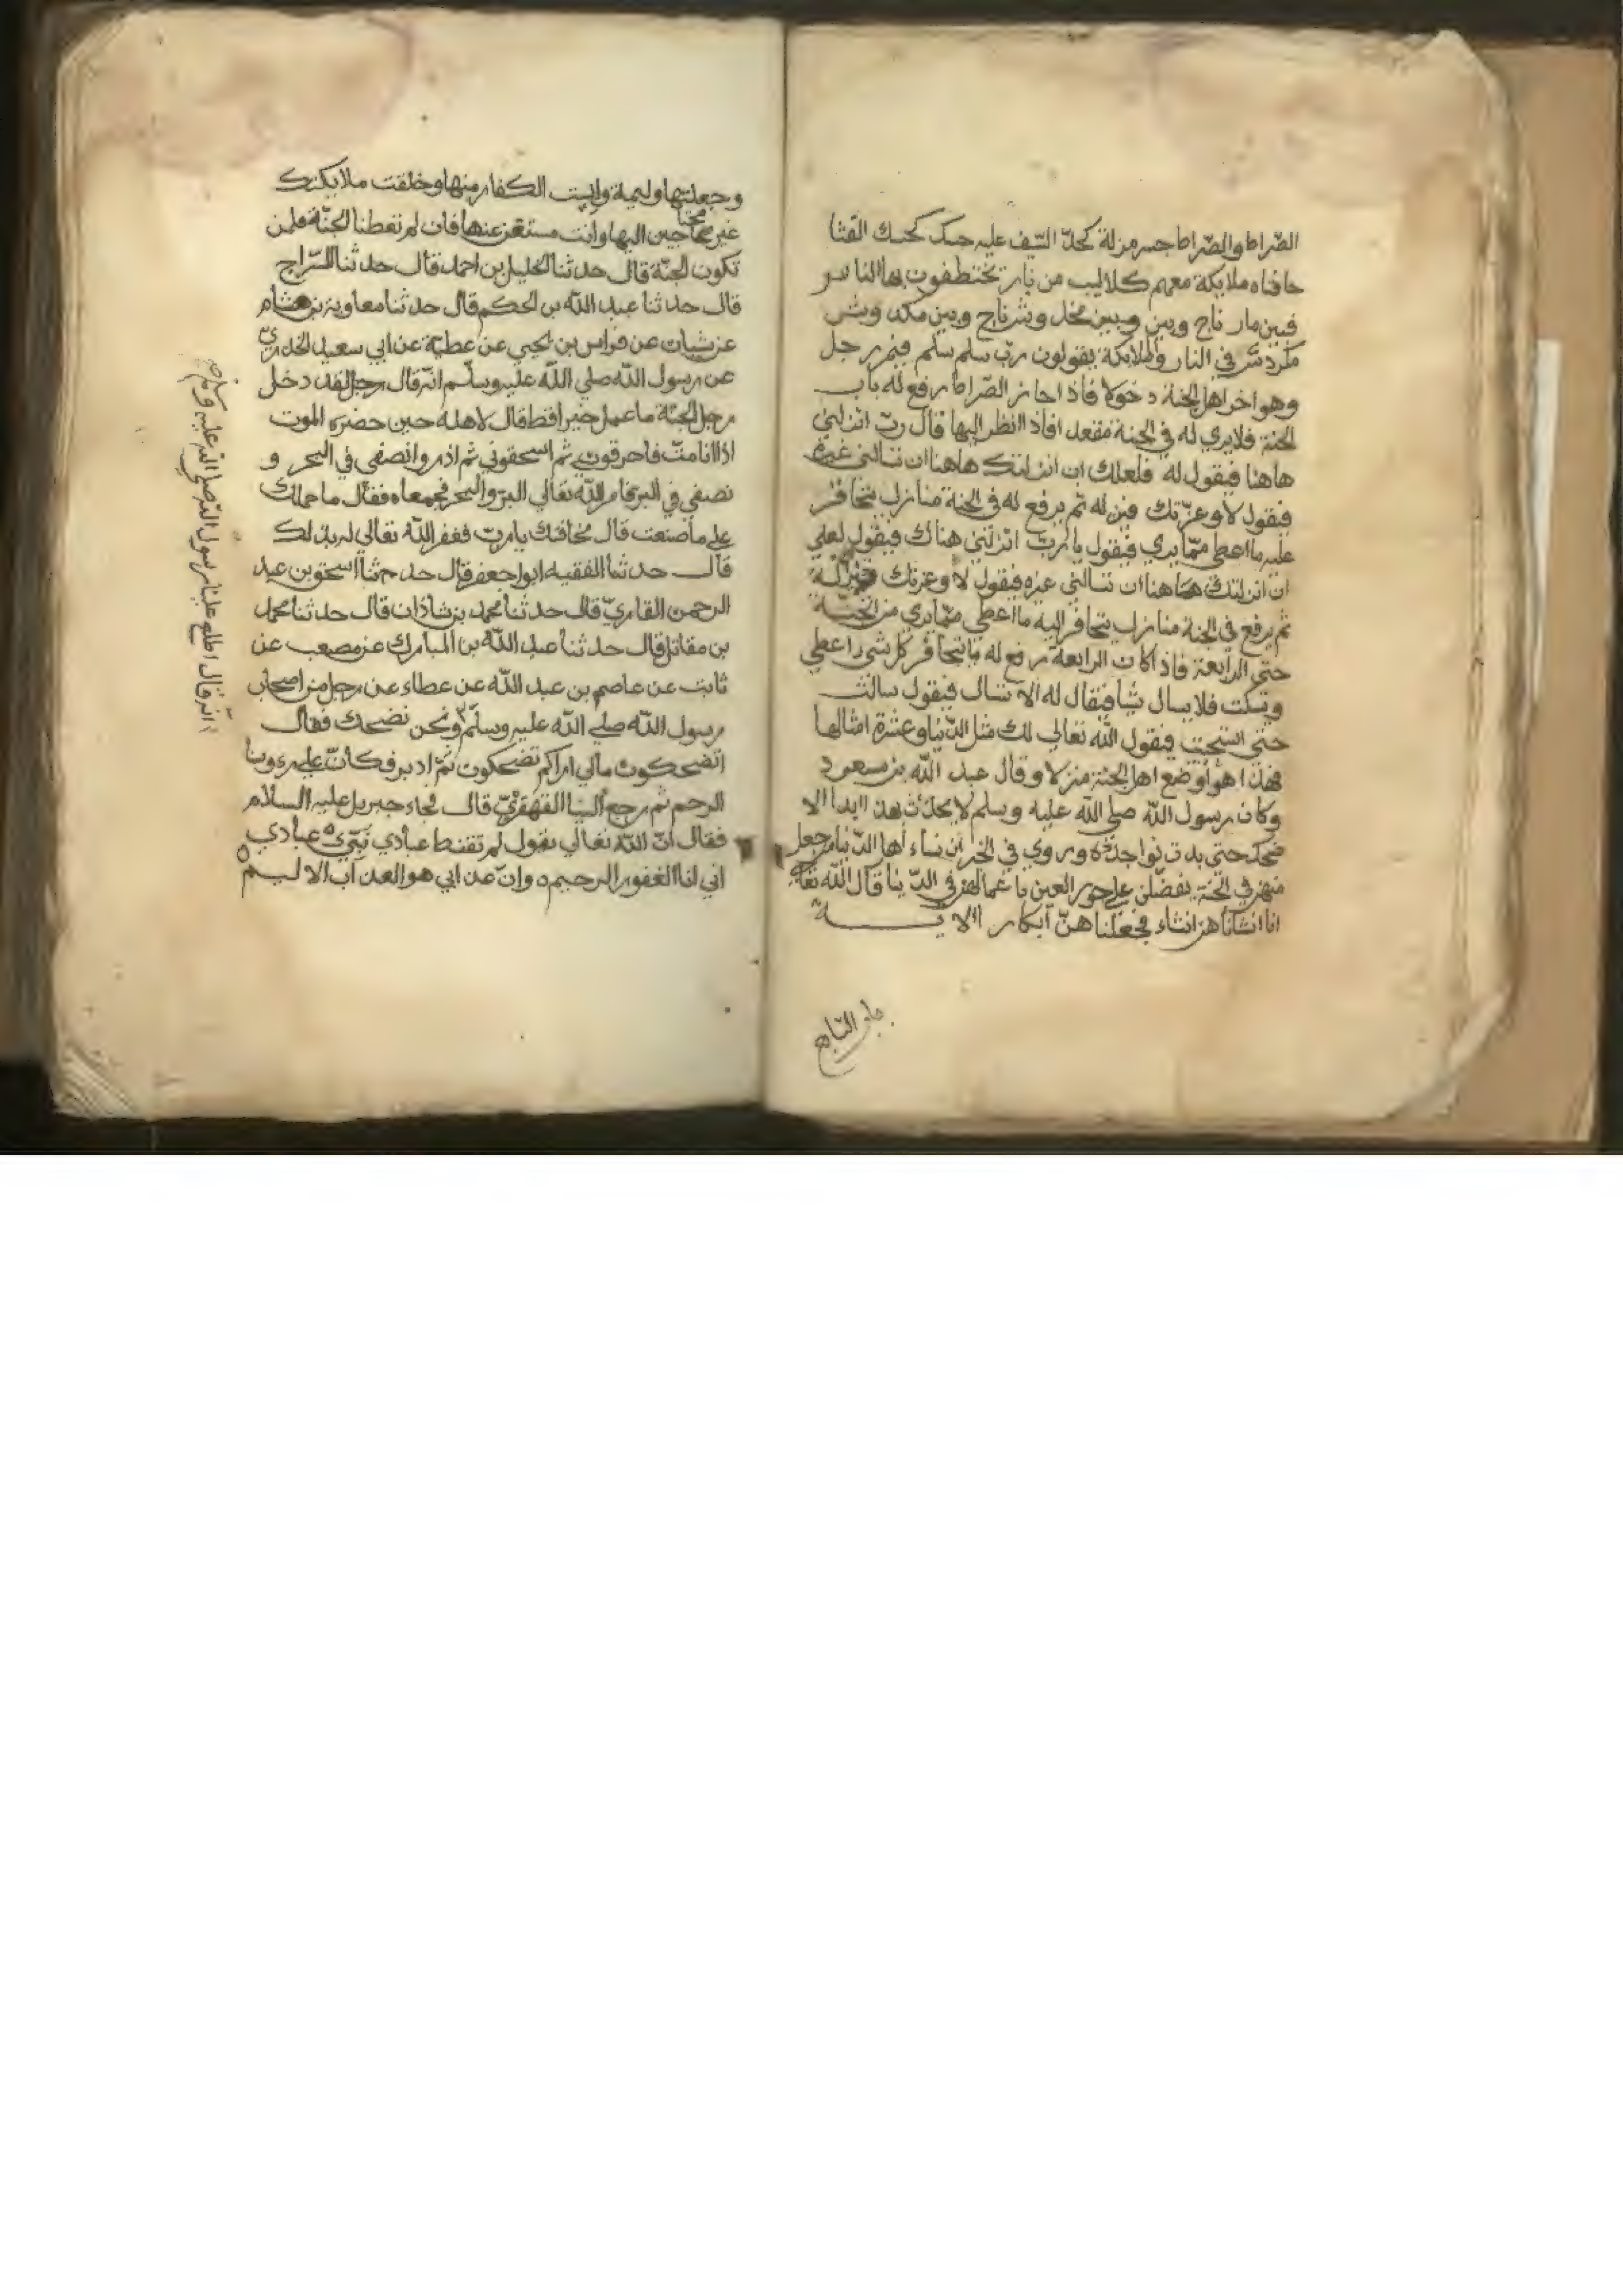 الصراط والصراط جسر مزلة كحدّ السّيف عليه حسك كحسك القثا
حافتاه ملايكة معهم كلاليب من نار تختطفون بها الناس
فبين مار ناج وبين وبين مخدل وبشر ناج وبين مكدس وبشر
في النار والملايكة يقولون ربّ سلم سلم فيمر رجل
وهو اخر اهل الجنة دخولا فاذا جاز الصّراط رفع له باب
الجنة فلا يري له في الجنة مقعد افاذا انظر اليها قال ربّ انزلني
هاهنا فيقول له فلعلك ان انزلتك هاهنا ان تسالني غيره
فيقول لا وعزّتك فينزله ثم يرفع له في الجنة منازل يتحاقر
عليه ما اعطي ممّا يري فيقول يا ربّ انزلني هناك فيقول لعلي
ان انزلتك هاهنا ان تسالني غيره فيقول لا وعزتك فينزله
ثم يرفع في الجنة منازل يتحاقر اليه ما اعطي ممّا يري من الجنّة
حتي الرابعة فاذا كان الرابعة رفع له ما يتحاقر كل شي اعطي
ويسكت فلا يسال شيا فيقال له الا تسال فيقول سالت
حتي استحيت فيقول الله تعالي لك مثل الدّنيا وعشرة امثالها
فهذا هو اوضع اهل الجنة منزلا وقال عبد الله بن مسعود
وكان رسول الله صلي الله عليه وسلم لا يحدّث بهذا ابدا الا
ضحك حتي بدت نواجذه وروي في الخبر ان نساء اهل الدّنيا من جعل
منهن في الجنة يفضّلن علي حور العين باعمالهن في الدّنيا قال الله تعالي
انا انشاناهن انشاء فجعلناهنّ ابكارا الاية
وجعلتها وليمة وايست الكفار منها وخلقت ملايكتك
غير محتاجين اليها وانت مستغن عنها فان لم تعطنا الجنّة فلمن
تكون الجنّة قال حدثنا الخليل بن احمد قال حدثنا السّراج
قال حدثنا عبد الله بن الحكم قال حدثنا معاوية بن هشام
عن شيبان عن فراس بن يحيي عن عطيّة عن ابي سعيد الخدريّ
عن رسول الله صلي الله عليه وسلّم انّه قال رجل لقد دخل
رجل الجنّة ما عمل خيرا قط قال لاهله حين حضره الموت
اذا انا متّ فاحرقوني ثم اسحقوني ثم اذروا نصفي في البحر و
نصفي في البرّ فامر الله تعالي البرّ والبحر فجمعاه فقال ما حملك
علي ما صنعت قال مخافتك يا ربّ فغفر الله تعالي له بذلك
قال حدثنا الفقيه ابو جعفر قال حدثنا اسحق بن عبد
الرحمن القاريّ قال حدثنا محمد بن شاذان قال حدثنا محمد
بن مقاتل قال حدثنا عبد الله بن المبارك عن مصعب عن
ثابت عن عاصم بن عبد الله عن عطاء عن رجل من اصحاب
رسول الله صلي الله عليه وسلّم ونحن نضحك فقال
اتضحكون مالي اراكم تضحكون ثمّ ادبر فكانّ علي رءوسنا
الرحم ثم رجع الينا القهقريّ قال فجاء جبريل عليه السلام
فقال انّ الله تعالي يقول لم تقنط عبادي نبّيء عبادي
اني انا الغفور الرحيم وانّ عذابي هو العذاب الاليم
انه قال اطلع علينا رسول الله صلي الله عليه وسلم